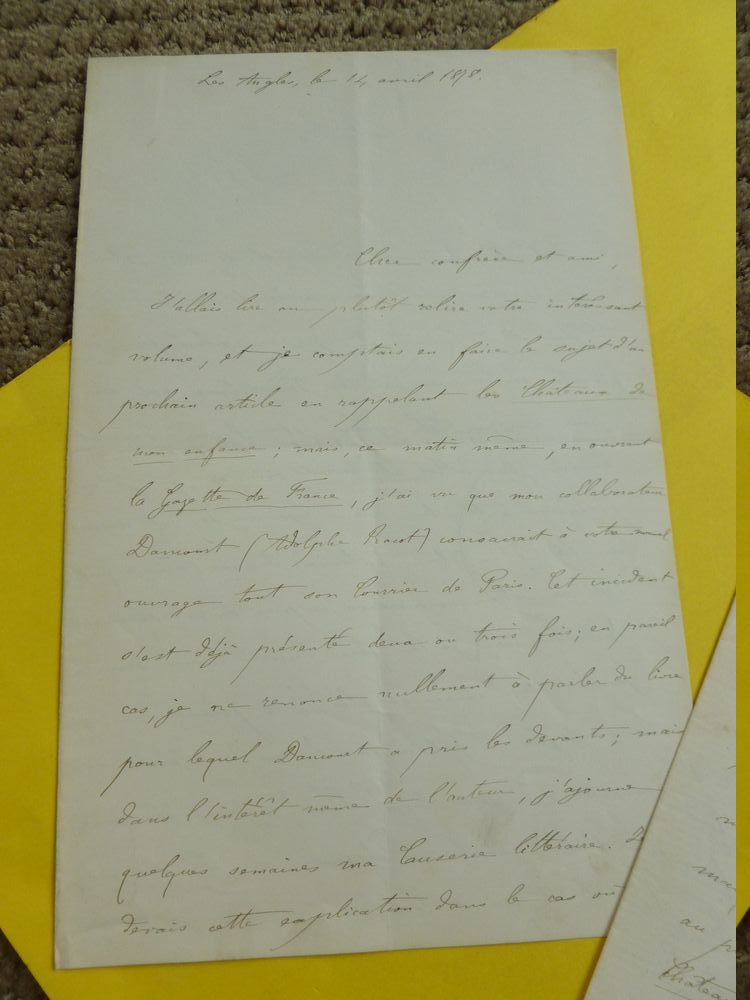 Les Angles, le 14 avril 1878.
Cher confrère et ami,
J'allais lire ou plutôt relire votre intéressant
volume, et je comptais en faire le sujet d'un
prochain article en rappelant les Châteaux de
mon enfance ; mais, ce matin même, en ouvrant
la Gazette de France, j'ai vu que mon collaborateur
Dancourt (Adolphe Racot) consacrait à votre nouvel
ouvrage tout son Courrier de Paris. Cet incident
s'est déjà présenté deux ou trois fois ; en pareil
cas, je ne renonce nullement à parler du livre
pour lequel Dancourt a pris les devants ; mais
dans l'intérêt même de l'auteur, j'ajourne
quelques semaines ma Causerie littéraire. Je
devais cette explication dans le cas où
au
Châtea